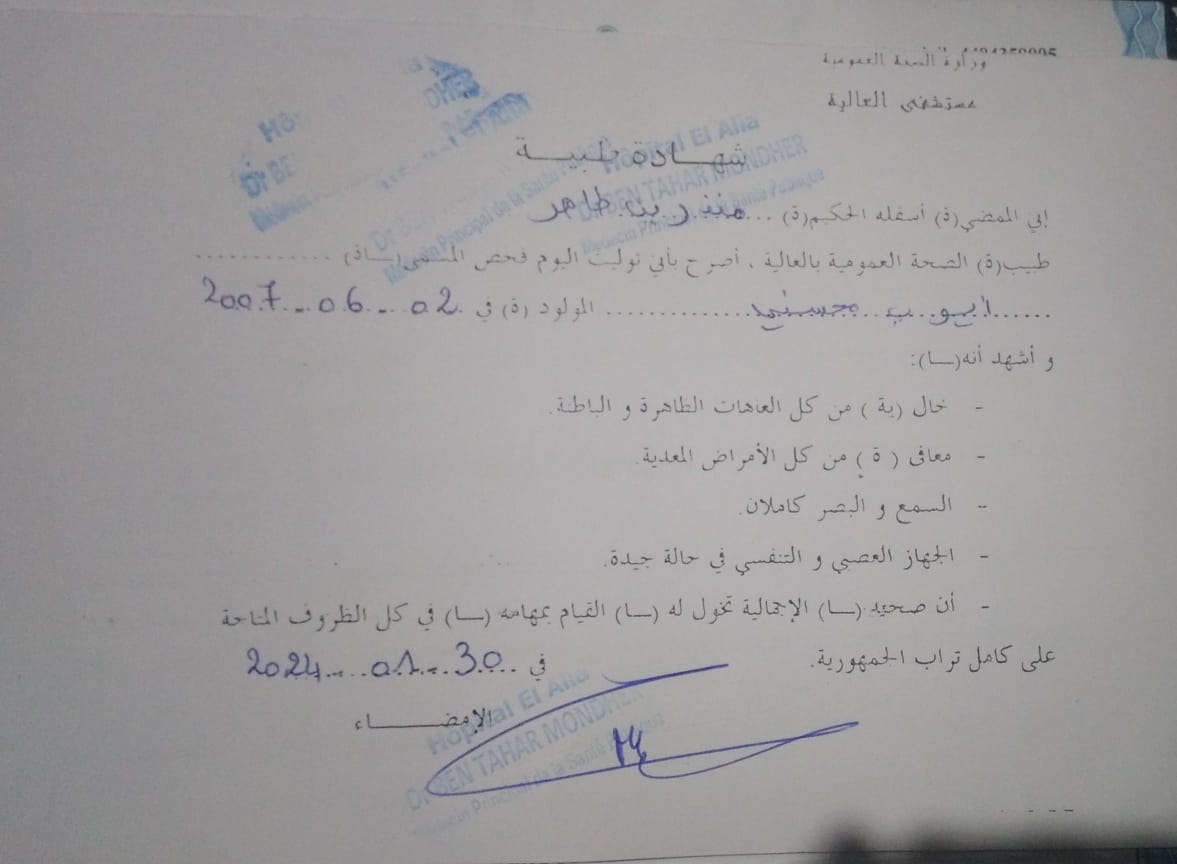 وزارة الصحة العمومية
مستشفى العالية
Hôpital El Alia
Dr BEN TAHAR MONDHER
Médecin Principal de la Santé Publique
شهـــادة طبيـــة
إني الممضي(ة) أسفله الحكيم(ة) ... منذر بن طاهر
طبيب(ة) الصحة العمومية بالعالية ، أصرح بأني توليت اليوم فحص المسمى(ـاة) ............
...... ايوب ............ المولود (ة) في 02 - 06 - 2007
و أشهد أنه(ــا):
- خال (ية ) من كل العاهات الظاهرة و الباطنة.
- معافى ( ة ) من كل الأمراض المعدية.
- السمع و البصر كاملان.
- الجهاز العصبي و التنفسي في حالة جيدة.
- أن صحته (ــا) الإجمالية تخول له (ــا) القيام بمهامه (ــا) في كل الظروف المتاحة
على كامل تراب الجمهورية. في 30 - 01 - 2024
الإمضـــــــاء
Hôpital El Alia
Dr BEN TAHAR MONDHER
Médecin Principal de la Santé Publique